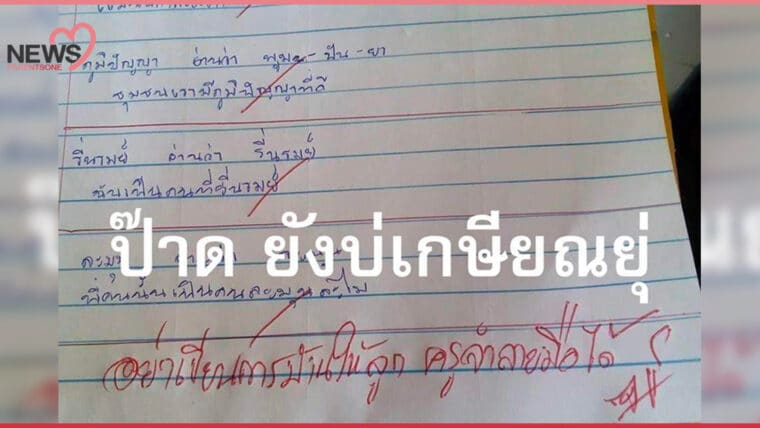 NEWS
PARENTSONE
ภูมิปัญญา อ่านว่า พูม-ปัน-ยา
ชุมชนเรามีภูมิปัญญาที่ดี
รื่นรมย์ อ่านว่า รื่นรมย์
ฉันเป็นคนที่รื่นรมย์
ป๊าด ยังบ่เกษียณยุ่
พี่คนนั้นเป็นคนละมุนละไม
อย่าเขียนการบ้านให้ลูก ครูจำลายมือได้